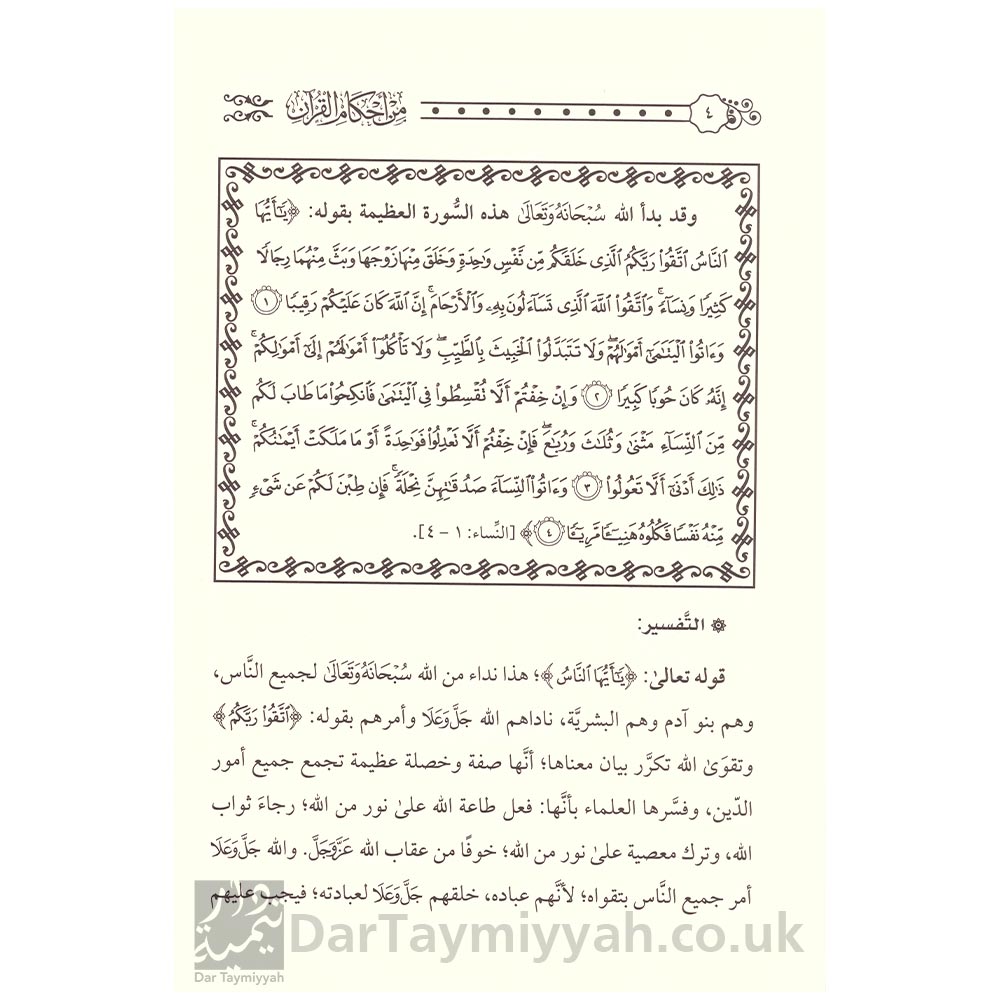 ٤
من أحكام القرآن
وقد بدأ الله سُبْحَانَهُ وَتَعَالَىٰ هذه السُّورة العظيمة بقوله: ﴿يَٰٓأَيُّهَا
ٱلنَّاسُ ٱتَّقُوا۟ رَبَّكُمُ ٱلَّذِى خَلَقَكُم مِّن نَّفْسٍ وَٰحِدَةٍ وَخَلَقَ مِنْهَا زَوْجَهَا وَبَثَّ مِنْهُمَا رِجَالًا
كَثِيرًا وَنِسَآءً ۚ وَٱتَّقُوا۟ ٱللَّهَ ٱلَّذِى تَسَآءَلُونَ بِهِۦ وَٱلْأَرْحَامَ ۚ إِنَّ ٱللَّهَ كَانَ عَلَيْكُمْ رَقِيبًا ١
وَءَاتُوا۟ ٱلْيَتَٰمَىٰٓ أَمْوَٰلَهُمْ ۖ وَلَا تَتَبَدَّلُوا۟ ٱلْخَبِيثَ بِٱلطَّيِّبِ ۖ وَلَا تَأْكُلُوٓا۟ أَمْوَٰلَهُمْ إِلَىٰٓ أَمْوَٰلِكُمْ ۚ
إِنَّهُۥ كَانَ حُوبًا كَبِيرًا ٢ وَإِنْ خِفْتُمْ أَلَّا تُقْسِطُوا۟ فِى ٱلْيَتَٰمَىٰ فَٱنكِحُوا۟ مَا طَابَ لَكُم
مِّنَ ٱلنِّسَآءِ مَثْنَىٰ وَثُلَٰثَ وَرُبَٰعَ ۖ فَإِنْ خِفْتُمْ أَلَّا تَعْدِلُوا۟ فَوَٰحِدَةً أَوْ مَا مَلَكَتْ أَيْمَٰنُكُمْ ۚ
ذَٰلِكَ أَدْنَىٰٓ أَلَّا تَعُولُوا۟ ٣ وَءَاتُوا۟ ٱلنِّسَآءَ صَدُقَٰتِهِنَّ نِحْلَةً ۚ فَإِن طِبْنَ لَكُمْ عَن شَىْءٍ
مِّنْهُ نَفْسًا فَكُلُوهُ هَنِيٓـًٔا مَّرِيٓـًٔا ٤﴾ [النِّساء: ١ – ٤].
التَّفسير:
قوله تعالىٰ: ﴿يَٰٓأَيُّهَا ٱلنَّاسُ﴾؛ هذا نداء من الله سُبْحَانَهُ وَتَعَالَىٰ لجميع النَّاس،
وهم بنو آدم وهم البشريَّة، ناداهم الله جَلَّ وَعَلَا وأمرهم بقوله: ﴿ٱتَّقُوا۟ رَبَّكُمُ﴾
وتقوَىٰ الله تكرَّر بيان معناها؛ أنَّها صفة وخصلة عظيمة تجمع جميع أمور
الدّين، وفسَّرها العلماء بأنَّها: فعل طاعة الله علىٰ نور من الله؛ رجاءَ ثواب
الله، وترك معصية علىٰ نور من الله؛ خوفًا من عقاب الله عَزَّ وَجَلَّ. والله جَلَّ وَعَلَا
أمر جميع النَّاس بتقواه؛ لأنَّهم عباده، خلقهم جَلَّ وَعَلَا لعبادته؛ فيجب عليهم
دار تيمية
Dar Taymiyyah
DarTaymiyyah.co.uk